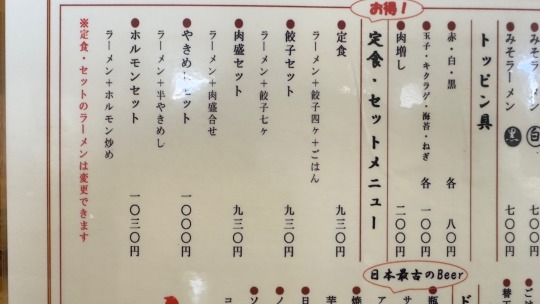 ●みそラーメン 白 七〇〇円
●みそラーメン 黒 七〇〇円
トッピン具
●赤・白・黒 各 八〇円
●玉子・キクラゲ・海苔・ねぎ 各 一〇〇円
●肉増し 二〇〇円
お得!
定食・セットメニュー
●定食 九三〇円
ラーメン+餃子四ヶ+ごはん
●餃子セット 九三〇円
ラーメン+餃子七ヶ
●肉盛セット 九三〇円
ラーメン+肉盛合せ
●やきめしセット 一〇〇〇円
ラーメン+半やきめし
●ホルモンセット 一〇三〇円
ラーメン+ホルモン炒め
※定食・セットのラーメンは変更できます
●ごは
●替玉
日本最古のBeer